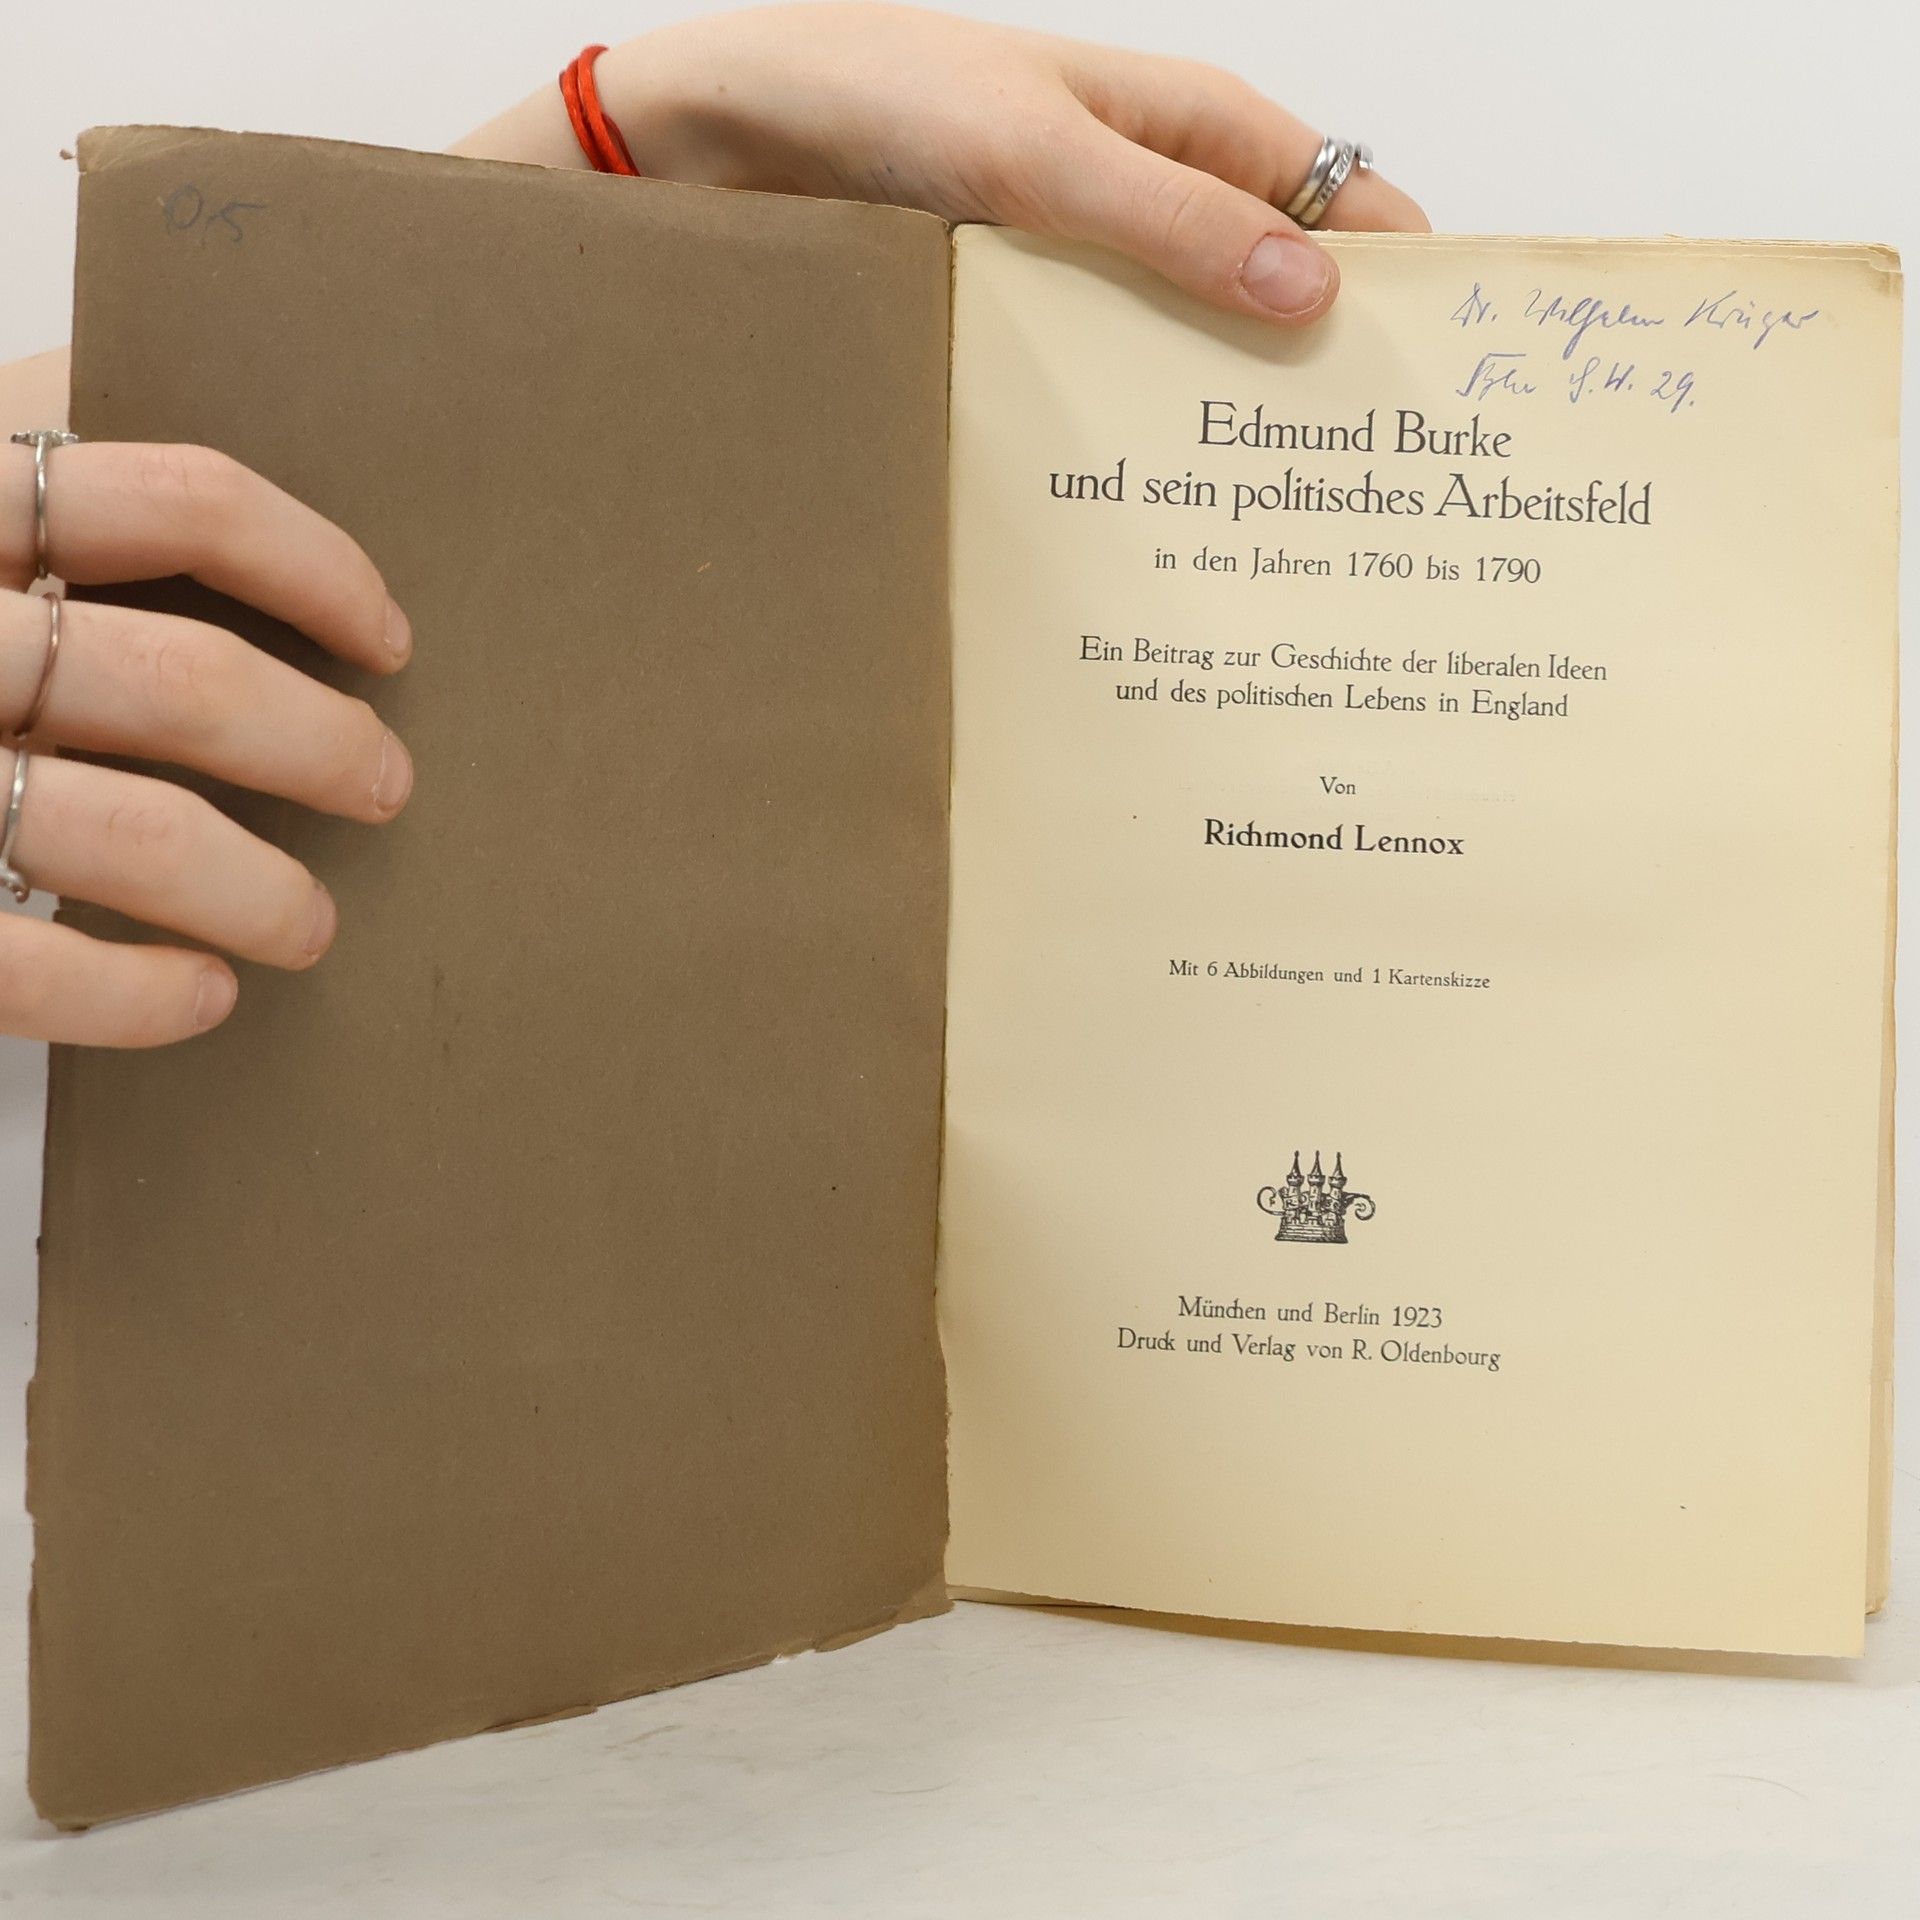 0,5
Dr. Wilhelm Krüger
S.W. 29.
Edmund Burke
und sein politisches Arbeitsfeld
in den Jahren 1760 bis 1790
Ein Beitrag zur Geschichte der liberalen Ideen
und des politischen Lebens in England
Von
Richmond Lennox
Mit 6 Abbildungen und 1 Kartenskizze
München und Berlin 1923
Druck und Verlag von R. Oldenbourg